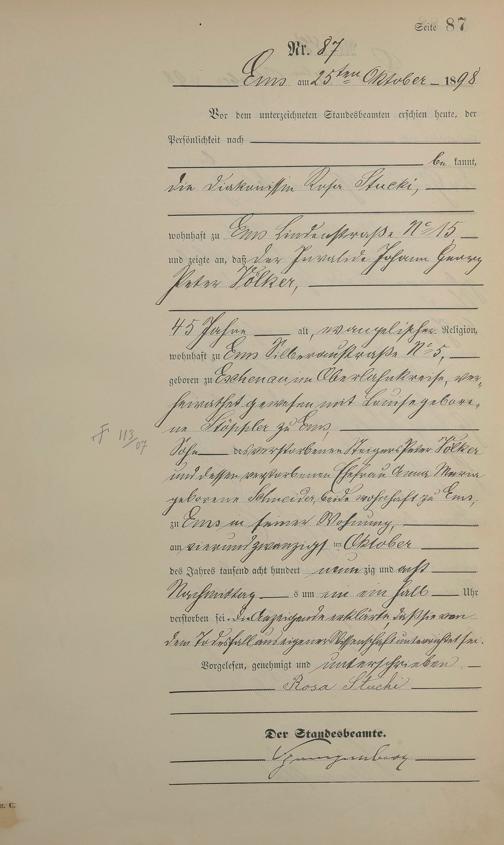 Seite 87
Nr. 87
Ems am 25ten Oktober 1898
Vor dem unterzeichneten Standesbeamten erschien heute, der
Persönlichkeit nach
be kannt,
die Diakonissin Rosa Stucki,
wohnhaft zu Ems Lindenstraße No 15,
und zeigte an, daß der Invalide Johann Georg
Peter Völker,
45 Jahre alt, evangelischer Religion,
wohnhaft zu Ems Silberaustraße No 5,
geboren zu Eschenau, im Oberlahnkreise, ver-
heirathet gewesen mit Louise gebore-
ne zu Ems,
113/07
Sohn des verstorbenen Steigers Peter Völker
und dessen verstorbenen Ehefrau Anna Maria
geborene Schneider, beide wohnhaft zu Ems,
zu Ems in seiner Wohnung,
am vierundzwanzigsten Oktober
des Jahres tausend acht hundert neun zig und acht
Nachmittags um ein ein halb Uhr
verstorben sei. Die Anzeigende erklärte, daß sie von
dem Todesfall aus eigener Wissenschaft unterrichtet sei.
Vorgelesen, genehmigt und unterschrieben
Rosa Stucki
Der Standesbeamte.
Spangenberg